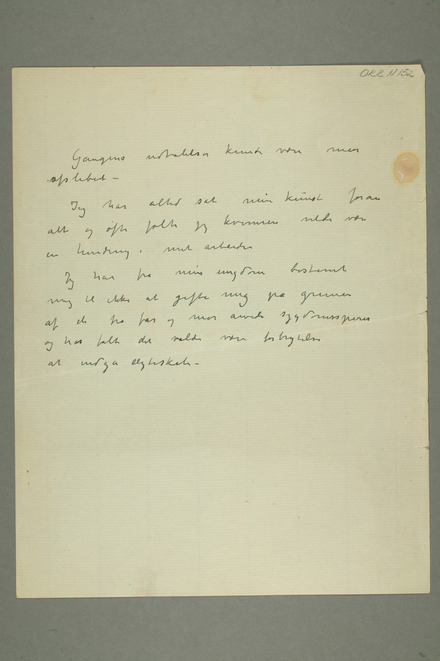 OKK N 152
Gaugins udtalelser kunde være mer
afslebet –
Jeg har altid sat min kunst foran
alt og ofte følte jeg kvinnen vilde være
en hindring i mit arbeide
Jeg har fra min ungdom bestemt
mig til ikke at gifte mig på grunn
af de fra far og mor arvede sygdomsspirer
og har følt det vilde være forbrydelse
at indgå ægteskab –